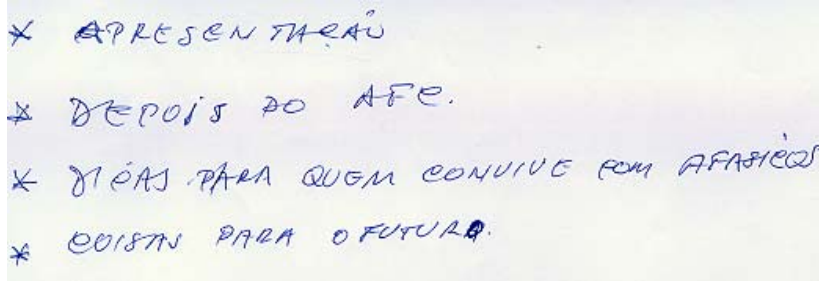 * APRESENTAÇÃO
* DEPOIS DO AFC.
* DICAS PARA QUEM CONVIVE COM AFASICOS
* COISAS PARA O FUTURO.